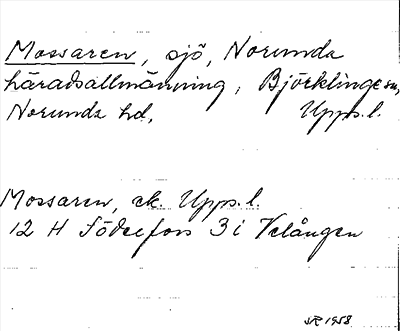 Mossaren, sjö, Norunda
häradsallmänning, Björklinge sn,
Norunda hd, Upps. l.
Mossaren, ek. Upps. l.
12 H Söderfors 3 i Velången
SR 1958